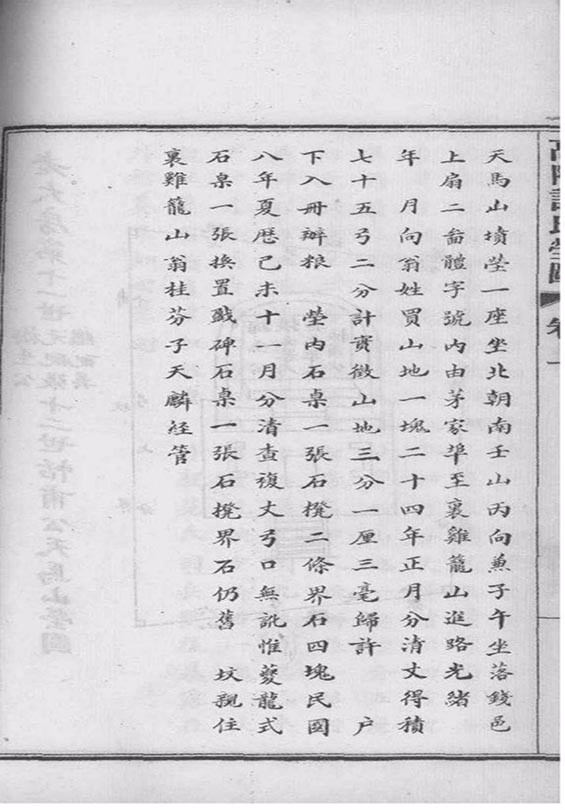 高陽許氏塋圖 卷一
天馬山墳塋一座坐北朝南壬山丙向兼子午坐落錢邑
上扇二啚體字號內由茅家埠至裏雞籠山逛路光緒
年 月向翁姓買山地一塊二十四年正月分清丈得積
七十五弓二分計實徵山地三分一厘三毫歸許 戶
下入冊辦粮 塋內石桌一張石櫈二條界石四塊民國
八年夏曆己未十一月分清查複丈弓口無訛惟夔龍式
石桌一張換置戲碑石桌一張石櫈界石仍舊 坟親住
裏雞籠山翁桂芬子天麟經管